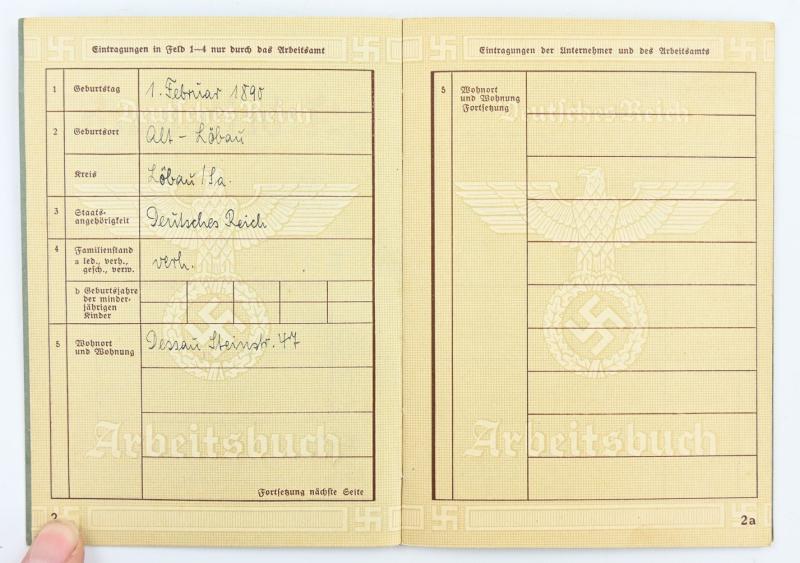 Eintragungen in Feld 1—4 nur durch das Arbeitsamt
Deutsches Reich
1 Geburtstag 1. Februar 1890
2 Geburtsort Alt - Löbau
Kreis Löbau/Sa.
3 Staats-
angehörigkeit Deutsches Reich
4 Familienstand
a led., verh.,
gesch., verw. verh.
b Geburtsjahre
der minder-
jährigen
Kinder
5 Wohnort
und Wohnung Dessau, Steinstr. 47
Arbeitsbuch
Fortsetzung nächste Seite
2
Eintragungen der Unternehmer und des Arbeitsamts
5 Wohnort
und Wohnung
Fortsetzung
Deutsches Reich
Arbeitsbuch
2a